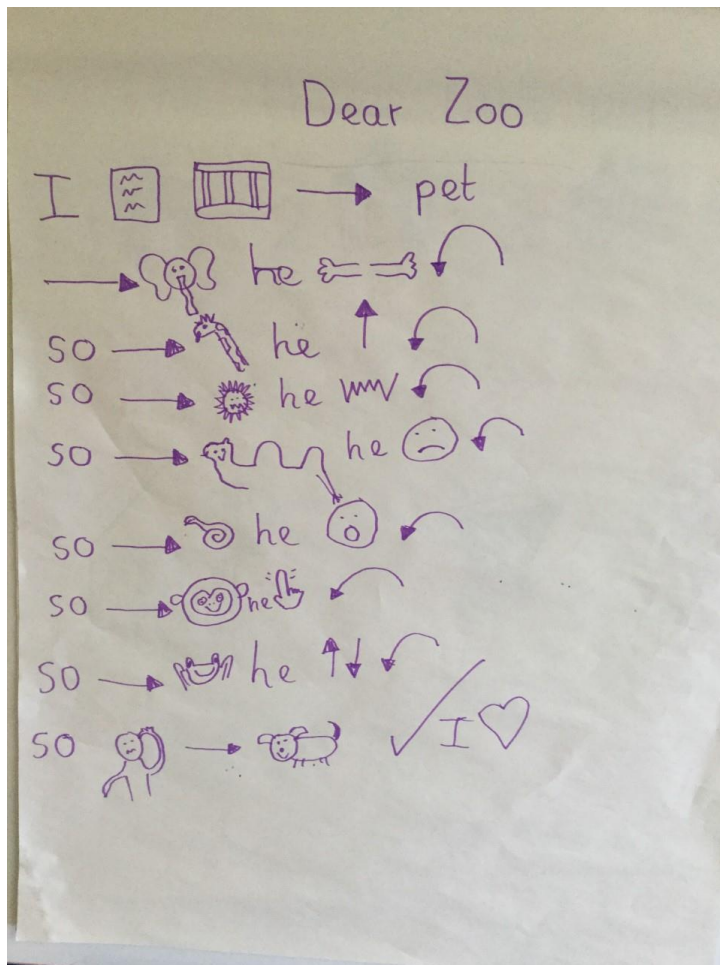 Dear Zoo
I pet
he
so he
so he
so he
so he
so he
so he
so I